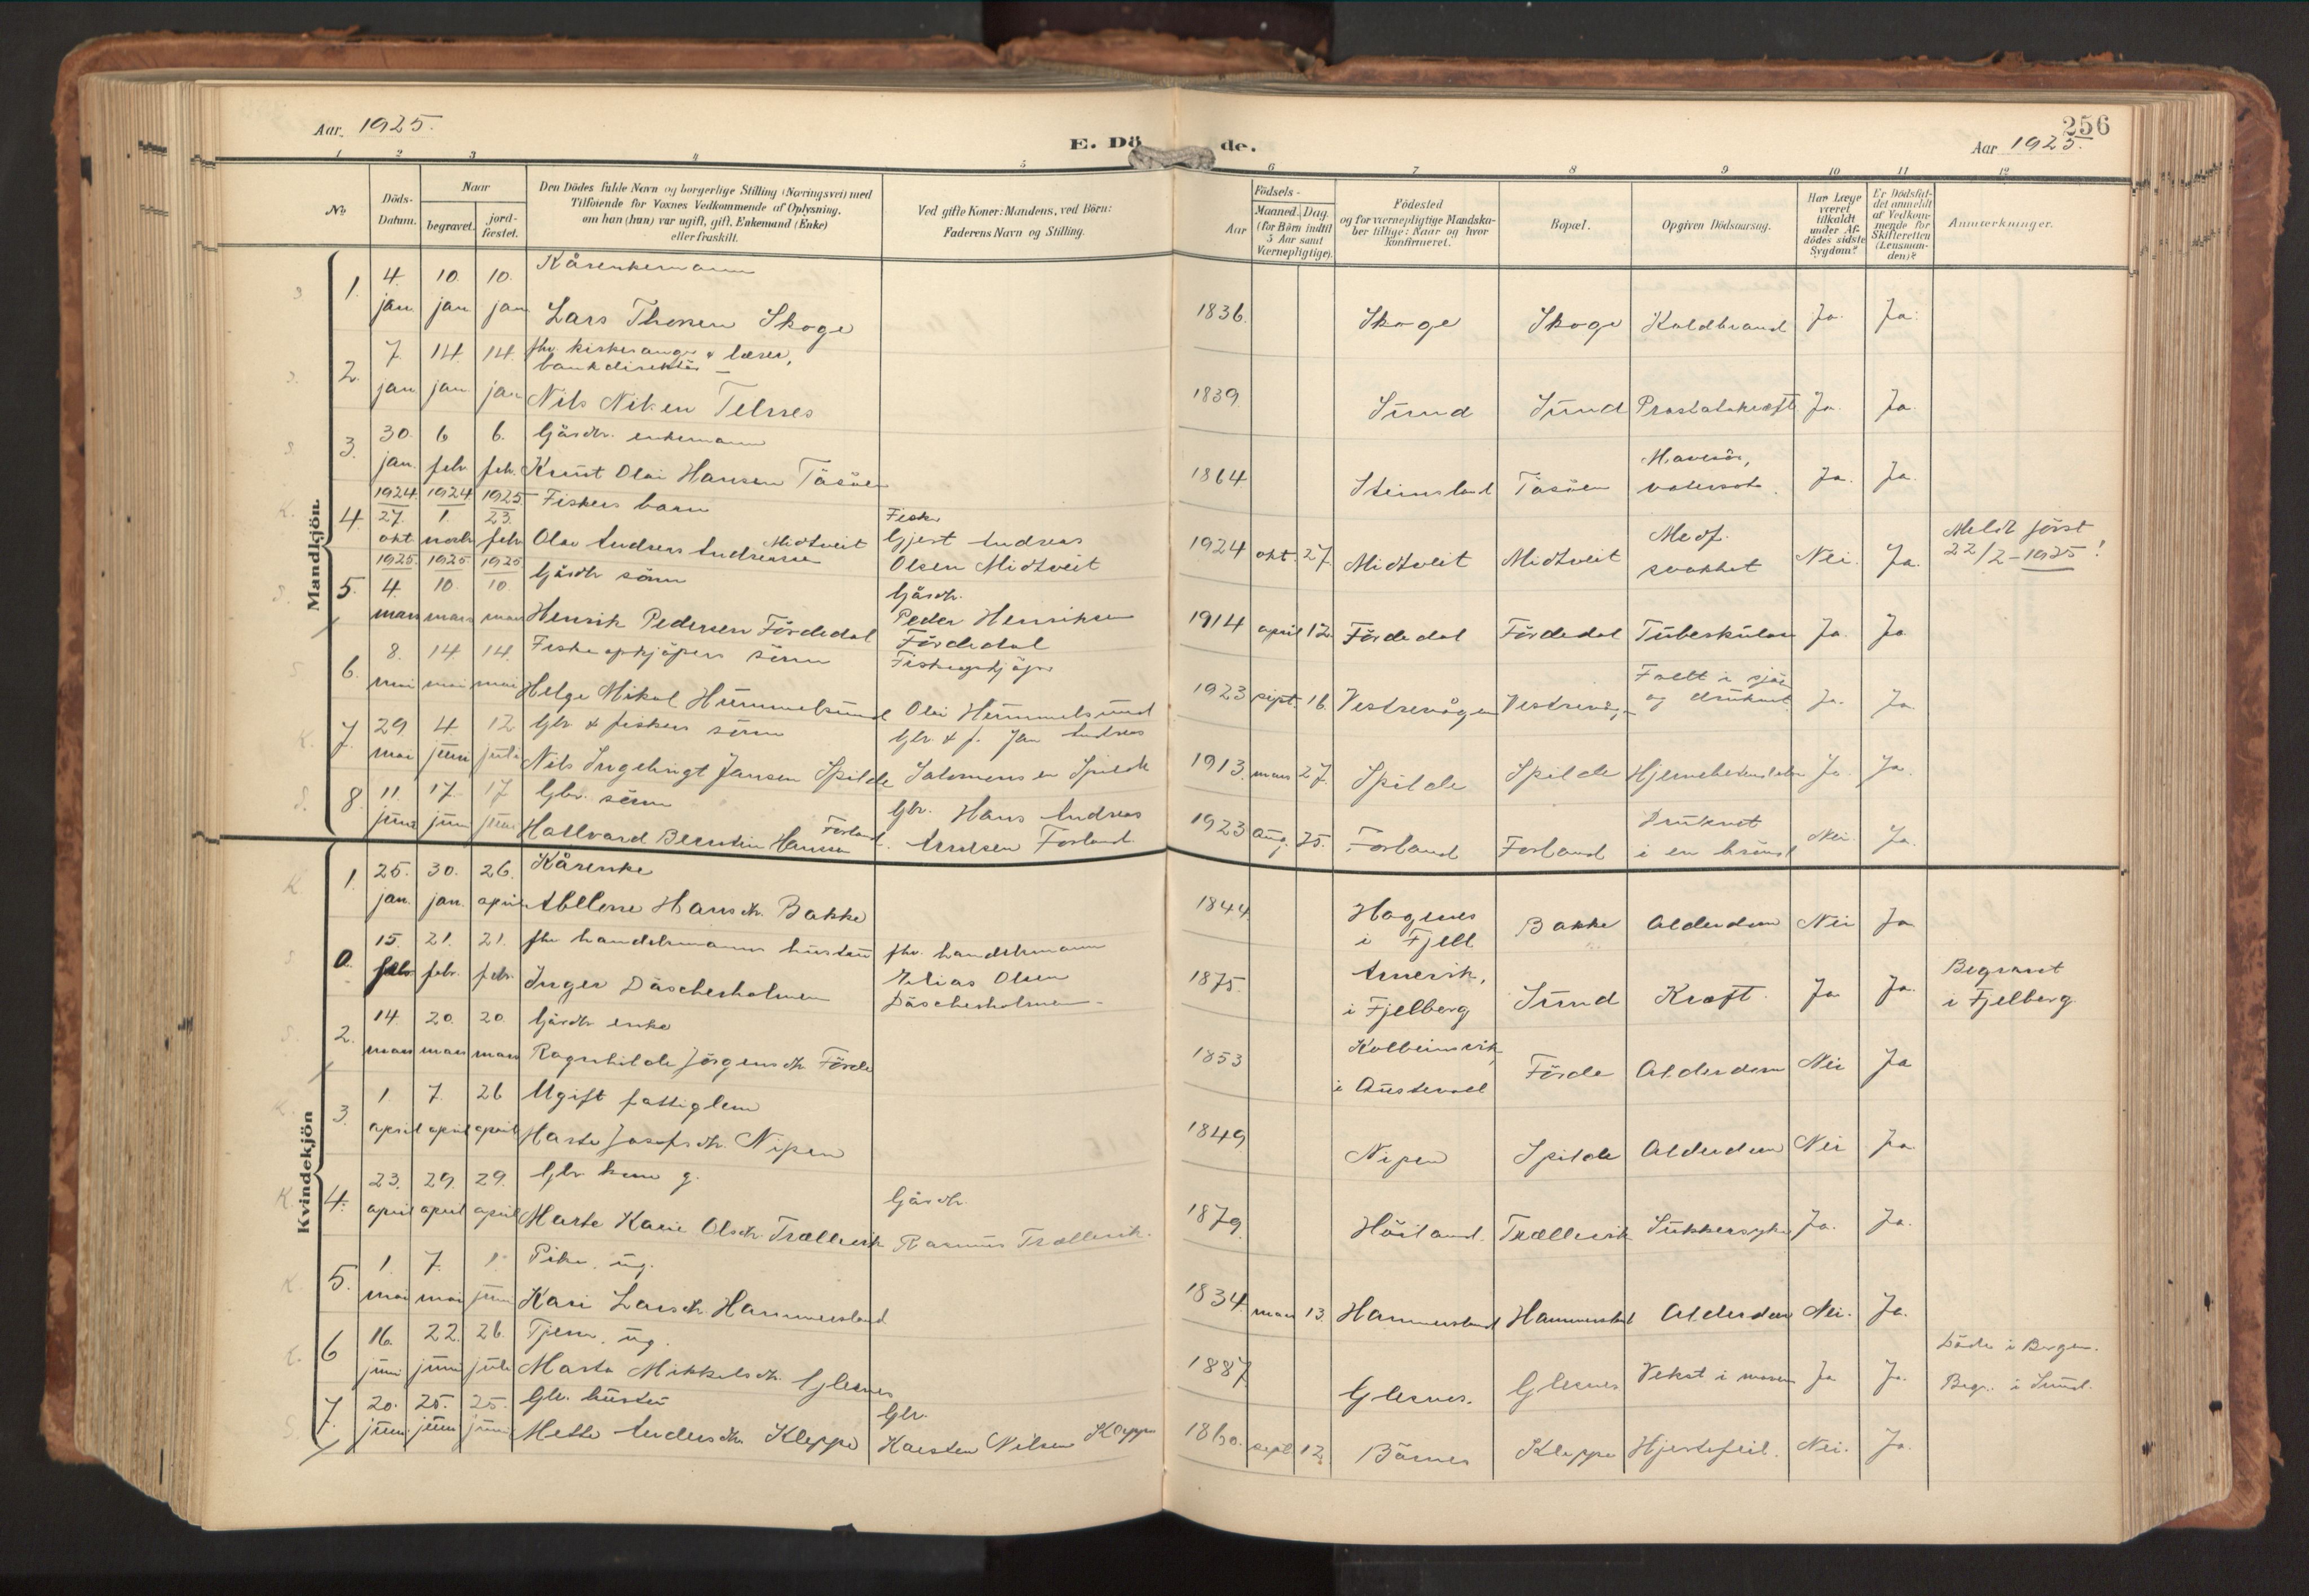 Aar 1925.
E. Dö de.
256
Aar 1925.
1 2 3 4 5 6 7 8 9 10 11 12
No
Döds-
Datum.
Naar
begravet.
jord-
fæstet.
Den Dödes fulde Navn og borgerlige Stilling (Næringsvei) med
Tilföiende for Voxnes Vedkommende af Oplysning,
om han (hun) var ugift, gift, Enkemand (Enke)
eller fraskilt.
Ved gifte Koner: Mandens, ved Börn:
Faderens Navn og Stilling.
Födsels-
Aar
Maaned. Dag.
(for Börn indtil
5 Aar samt
Værnepligtige).
Födested
og for værnepligtige Mandska-
ber tillige: Naar og hvor
konfirmeret.
Bopæl.
Opgiven Dödsaarsag.
Har Læge
været
tilkaldt
under Af-
dödes sidste
Sygdom?
Er Dödsfal-
det anmeldt
af Vedkom-
mende for
Skifteretten
(Lensman-
den)?
Anmærkninger.
Mandkjön.
1. 4. 10. 10. Kårenkemann
jan jan jan Lars Skoge 1836. Skoge Skoge Koldbrand Ja. Ja.
2. 7. 14. 14. fhv. kirkesanger & lærer,
bankdirektör
jan jan jan Nils Telnes 1839. Sund Sund Ja. Ja.
3. 30. 6 6. Gårdbr. enkemann
jan. febr. feb. Knut Olai Hansen Tösöen 1864 Steinsland Tösöen vatersot. Ja. Ja.
1924 1924 1925 Fiskers barn
4. 27. 1. 23. Fisker
okt novbr febr Olav Andreas Andreassen Midtveit Gjert Andreas
Olsen Midtveit 1924 okt. 27. Midtveit Midtveit Medf.
svakhet Nei. Ja. Meldt först
22/2-1925!
1925 1925 1925 Gårdbr sönn
5. 4. 10. 10. Gårdbr.
mars mars mars Henrik Pedersen Fördedal Peder Henriksen
Fördedal 1914 april 12. Fördedal Fördedal Tuberkulose Ja. Ja
6. 8. 14. 14. Fiskeopkjöpers sönn Fiskeopkjöper
mai mai mai Helge Mikal Hummelsund Olai Hummelsund 1923 sept. 16. Vestrevågen Vestrevåg. Falt i sjöen
og druknet Ja. Ja.
7. 29 4. 12 Gbr. & fiskers sönn Gbr. & f. Jan Andreas
mai juni juli Nils Ingebrigt Jansen Spilde Salomonsen Spilde 1913. mars 27. Spilde Spilde Hjernehetebetendelse Ja. Ja.
8. 11. 17. 17 Gbr. sönn Gbr. Hans Andreas
juni juni juni Hallvard Berntin Hansen Forland. Andersen Forland. 1923 aug. 25. Forland Forland Druknet
i en brönd Nei Ja.
Kvindekjön
1. 25. 30. 26. Kårenke
jan. jan. april Abelone Hansdtr. Bakke 1844 Hagenes
i Fjell Bakke Alderdom Nei Ja
0. 15. 21. 21. fhv handelsmanns hustru fhv. handelsmann
febr febr. febr. Inger Döscherholmen Elias Olsen
Döscherholmen 1875. Arnevik,
i Fjelberg Sund Kræft. Ja Ja. Begravet
i Fjelberg
2. 14. 20. 20. Gårdbr enke
mars mars mars Ragnhilde Jörgensdtr. Förde 1853 Kolbeinsvik,
i Austevoll Förde Alderdom Nei Ja
3. 1. 7. 26 Ugift fattiglem
april april april Marta Josefsdtr. Nipen 1849 Nipen Spilde Alderdom Nei Ja
4. 23. 29. 29. Gbr. kone g. Gårdbr.
april april april Marta Karie Olsdtr. Trællevik Rasmus Trællevik. 1879. Höiland. Trællevik Sukkersyke Ja. Ja.
5. 1. 7. 1. Pike. ug.
mai mai juni Kari Larsdtr. Hammersland 1834 mars 13. Hammersland Hammersland Alderdom Nei. Ja.
6 16. 22. 26. Tjen. ug.
juni juni juli Marta Mikkelsdtr. Glesnes 1887. Glesnes. Glesnes Vekst i maven Ja Ja. Döde i Bergen.
Begr. i Sund.
7. 20. 25. 25. Gbr. hustru Gbr.
juni juni juni Mette Andersdtr. Kleppe Karsten Nilsen Kleppe 1860. sept. 12. Börnes Kleppe Hjertefeil. Nei. Ja.